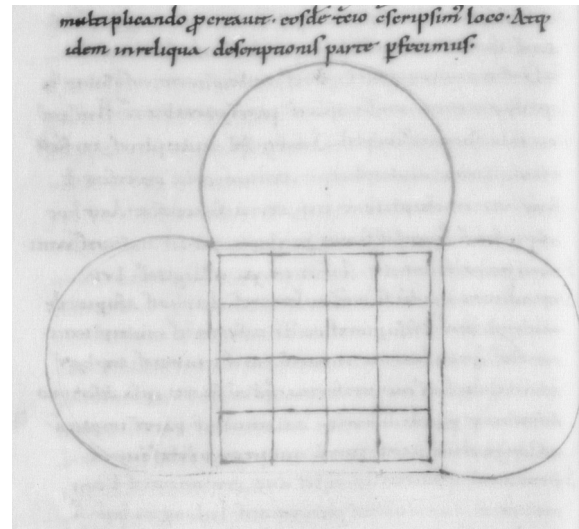 multiplicando ꝓcreauit. eosdē tc̄io c̄scripsim' loco. Atq
idem in reliqua descriptionis parte ꝑfecimus.